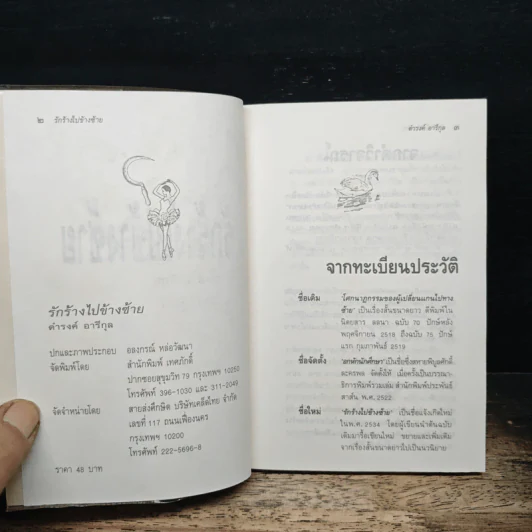 ๒ รักร้างไปข้างซ้าย
รักร้างไปข้างซ้าย
ดำรงค์ อารีกุล
ปกและภาพประกอบ อลงกรณ์ หล่อวัฒนา
จัดพิมพ์โดย สำนักพิมพ์ เทศภักดิ์
ปากซอยสุขุมวิท 79 กรุงเทพฯ 10250
โทรศัพท์ 396-1030 และ 311-2049
จัดจำหน่ายโดย สายส่งศึกษิต บริษัทเคล็ดไทย จำกัด
เลขที่ 117 ถนนเฟื่องนคร
กรุงเทพฯ 10200
โทรศัพท์ 222-5696-8
ราคา 48 บาท
ดำรงค์ อารีกุล ๓
จากทะเบียนประวัติ
ชื่อเดิม "โศกนาฏกรรมของผู้เปลี่ยนแกนไปทาง
ซ้าย" เป็นเรื่องสั้นขนาดยาว ตีพิมพ์ใน
นิตยสาร ลลนา ฉบับ 70 ปักษ์หลัง
พฤศจิกายน 2518 ถึงฉบับ 75 ปักษ์
แรก กุมภาพันธ์ 2519
ชื่อจัดตั้ง เป็นชื่อซึ่งสหายพิบูลศักดิ์
ละครพล จัดตั้งให้ เมื่อครั้งเป็นบรรณา-
ธิการพิมพ์รวมเล่ม สำนักพิมพ์ประพันธ์
สาส์น พ.ศ. 2522
ชื่อใหม่ "รักร้างไปข้างซ้าย" เป็นชื่อแจ้งเกิดใหม่
ในพ.ศ. 2534 โดยผู้เขียนนำต้นฉบับ
เดิมมารื้อเขียนใหม่ ขยายและเพิ่มเติม
จากเรื่องสั้นขนาดยาวไปเป็นนวนิยาย